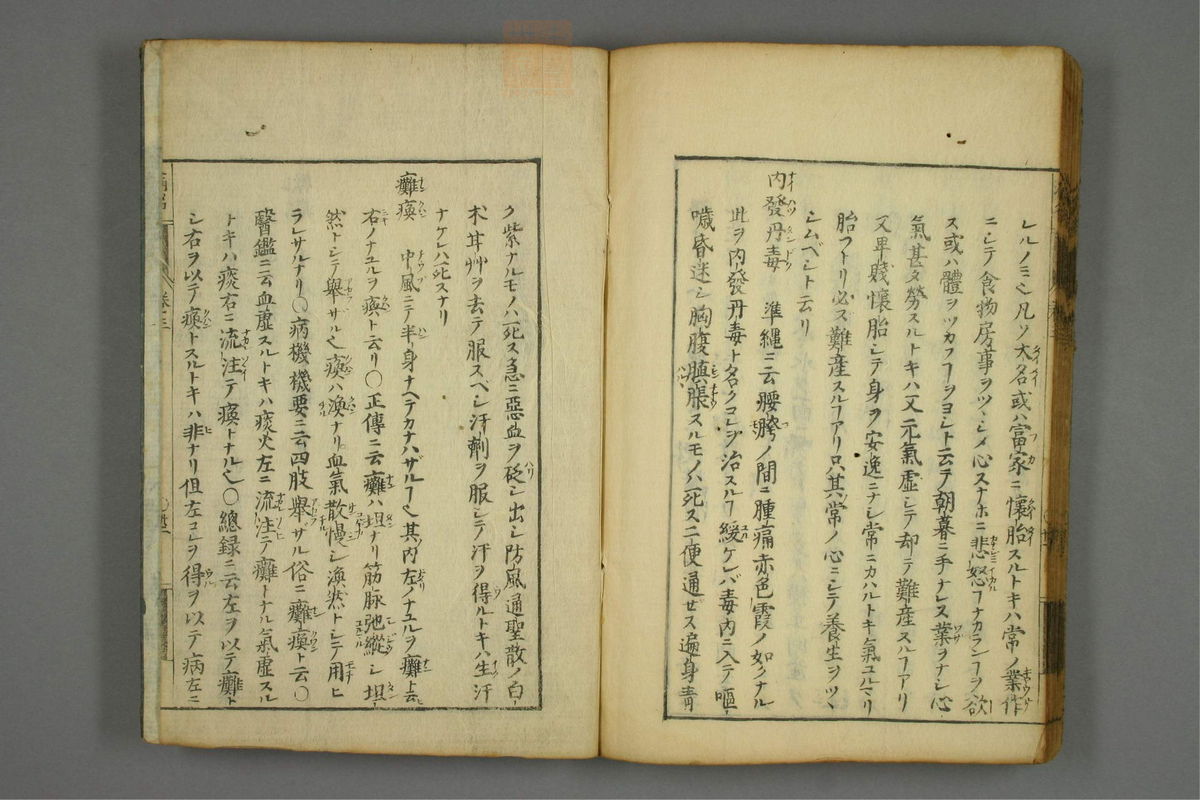 レルノミ也凡ソ大名或ハ富家ニ懐胎スルトキハ常ノ業作
ニシテ食物房事ヲツヽシメ心スナホニ悲怒ヿナカランヿヲ欲
ス或ハ體ヲツカフヲヨシト云テ朝暮ニ手ナレヌ業ヲナシ心
氣甚タ勞スルトキハ又元氣虚シテ却テ難産スルヿアリ
又卑賤懐胎シテ身ヲ安逸ニナシ常ニカハルトキ氣ユルマリ
胎フトリ必ス難産スルヿアリ只其常ノ心ニシテ養生ヲツヽ
シムベシト云リ
内發丹毒 準縄ニ云腰胯ノ間ニ腫痛赤色霞ノ如クナル
此ヲ内發丹毒ト名クコレヲ治スルヿ緩ケレバ毒内ニ入テ嘔
噦昏迷シ胸腹䐜脹スルモノハ死ス二便通ゼス遍身青
ク紫ナルモノハ死ス急ニ惡血ヲ砭シ出シ防風通聖散ノ白
朮耳艸ヲ去テ服スベシ汗劑ヲ服シテ汗ヲ得ルトキハ生汗
ナケレハ死スナリ
癱瘓 中風ニテ半身ナヘテカナハザルヿ也其内左ノナユルヲ癱ト云
右ノナユルヲ瘓ト云リ〇正傳ニ云癱ハ坦ナリ筋脉弛縱シ坦
然トシテ舉ザル也瘓ハ渙ナリ血氣散慢シ渙然トシテ用ヒ
ラレサルナリ〇病機機要ニ云四肢舉ザル俗ニ癱瘓ト云〇
醫鑑ニ云血虚スルトキハ痰火左ニ流注テ癱トナル氣虚スル
トキハ痰右ニ流注テ瘓トナル也〇總録ニ云左ヲ以テ癱ト
シ右ヲ以テ瘓トスルトキハ非ナリ但左コレヲ得ヲ以テ病左ニ